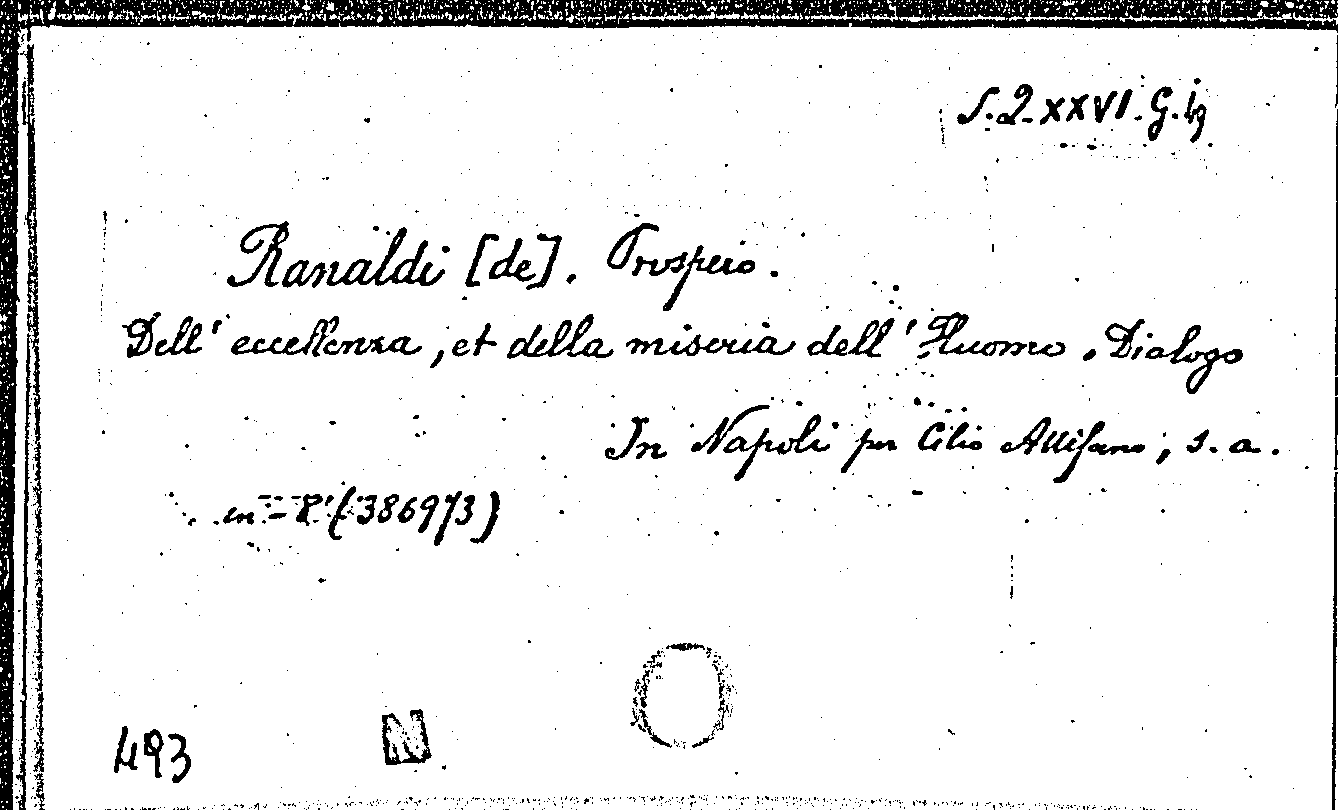 S.Q.XXVI.G.
Ranaldi [de]. Prospero.
Dell' eccellenza, et della miseria dell' Huomo. Dialogo
In Napoli per Cilio Allifano, s. a.
in-8° (386973)
493
N